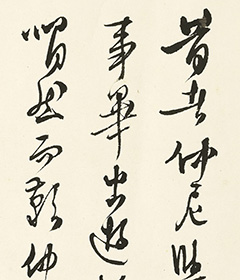 昔者仲尼
事畢出遊
喟然而歎仲